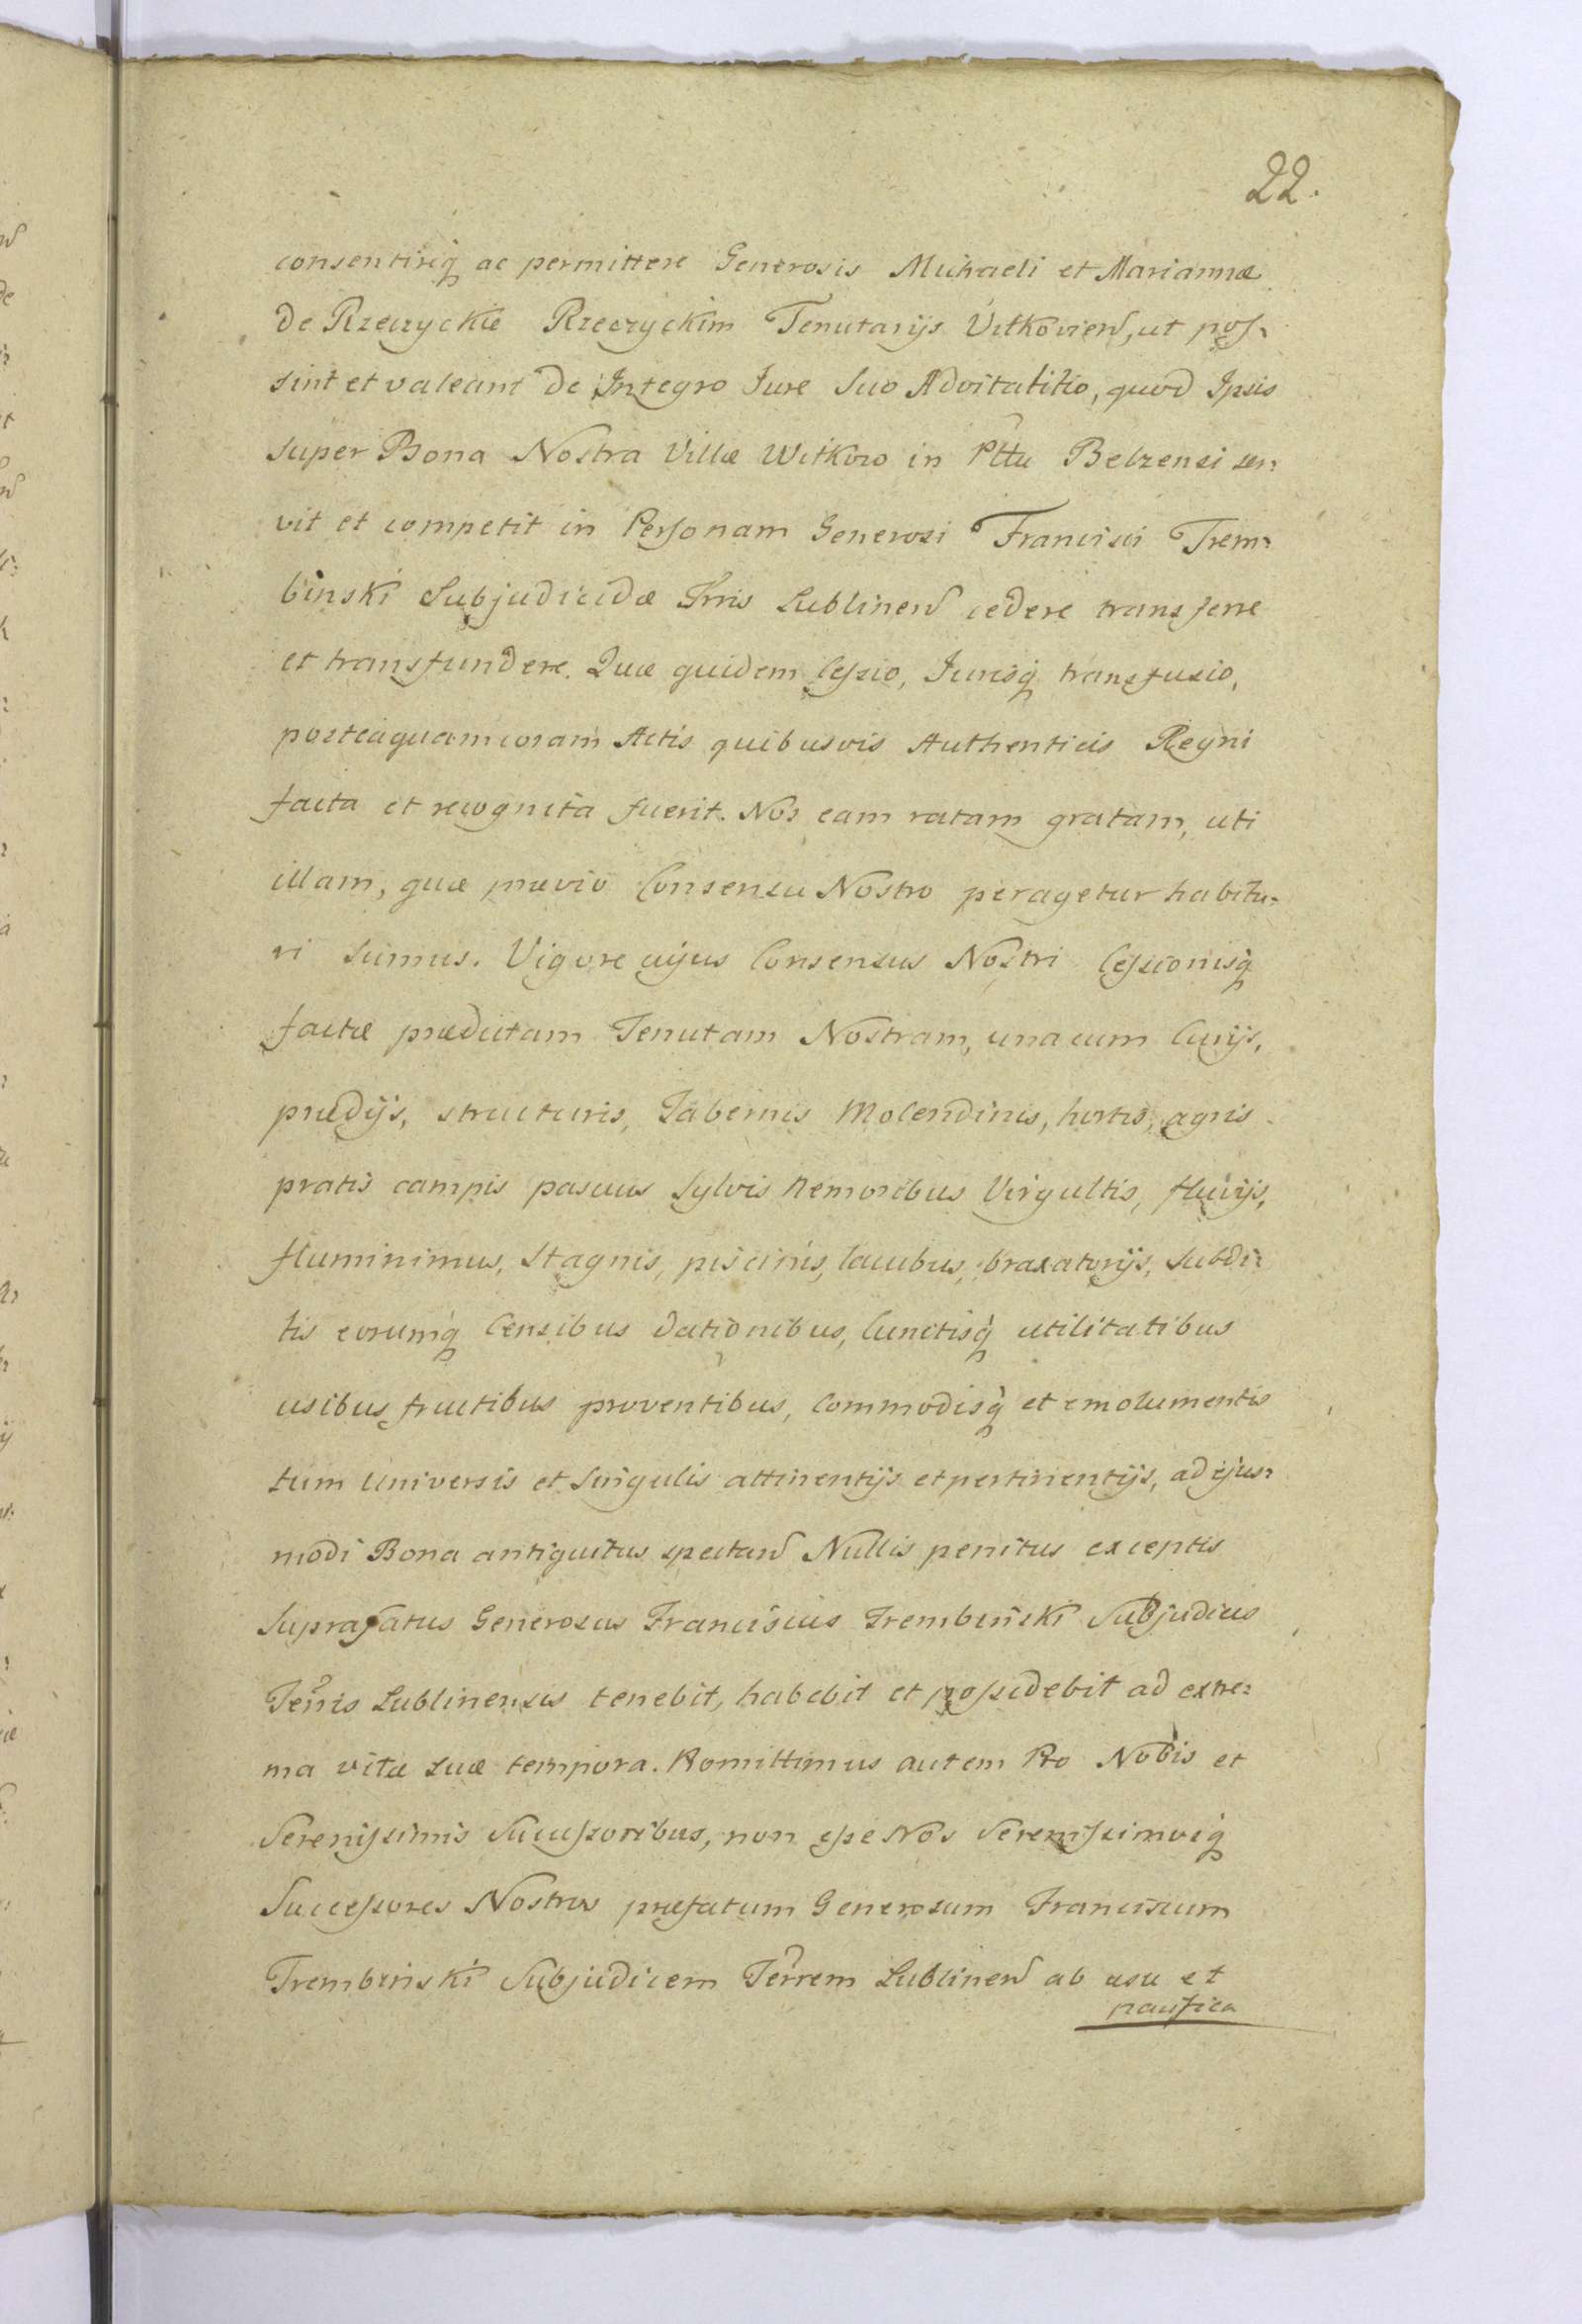 22.
consentireq ac permittere Generosis Michaeli et Mariannæ
de Rzeczyckie Rzeczyckim Tenutarijs Vitkovien, ut pos=
sint et valeant de Integro Jure Suo Advitalitio, quod Ipsis
super Bona Nostra Villæ Witkow in Pttu Belzensi ser=
vit et competit in Personam Generosi Francisci Trem=
binski Subjudicidæ Trris Lublinen cedere transferre
et transfundere. Quæ quidem Cessio, Jurisq transfusio,
posteaquam coram Actis quibusvis Authenticis Regni
facta et recognita fuerit. Nos eam ratam gratam, uti
illam, quæ prævio Consensu Nostro peragetur habitu=
ri sumus. Vigore cujus Consensus Nostri Cessionisq
factæ prædictam Tenutam Nostram, una cum Curijs,
prædijs, structuris, Tabernis Molendinis, hortis, agris
pratis campis pascuis Sylvis Nemoribus Virgultis, fluvijs,
fluminimus, Stagnis, piscinis, lacubus, braxatorijs, Subdi=
tis eorumq Censibus dationibus, Cunctisq utilitatibus
usibus fructibus proventibus, Commodisq et emolumentis
tum Universis et Singulis attinentijs et pertinentijs, ad ejus=
modi Bona antiquitus spectan Nullis penitus exceptis
Suprafatus Generosus Franciscus Trembinski Subjudicus
Terris Lublinensis tenebit, habebit et possidebit ad extre=
ma vitæ suæ tempora. Promittimus autem Pro Nobis et
Serenissimis Sucessoribus, non esse Nos Serenissimosq
Successores Nostros præfatum Generosum Franciscum
Trembinski Subjudicem Terrem Lublinen ab usu et
pacifica